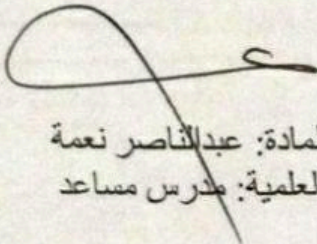 لمادة: عبدالناصر نعمة
لعلمية: مدرس مساعد